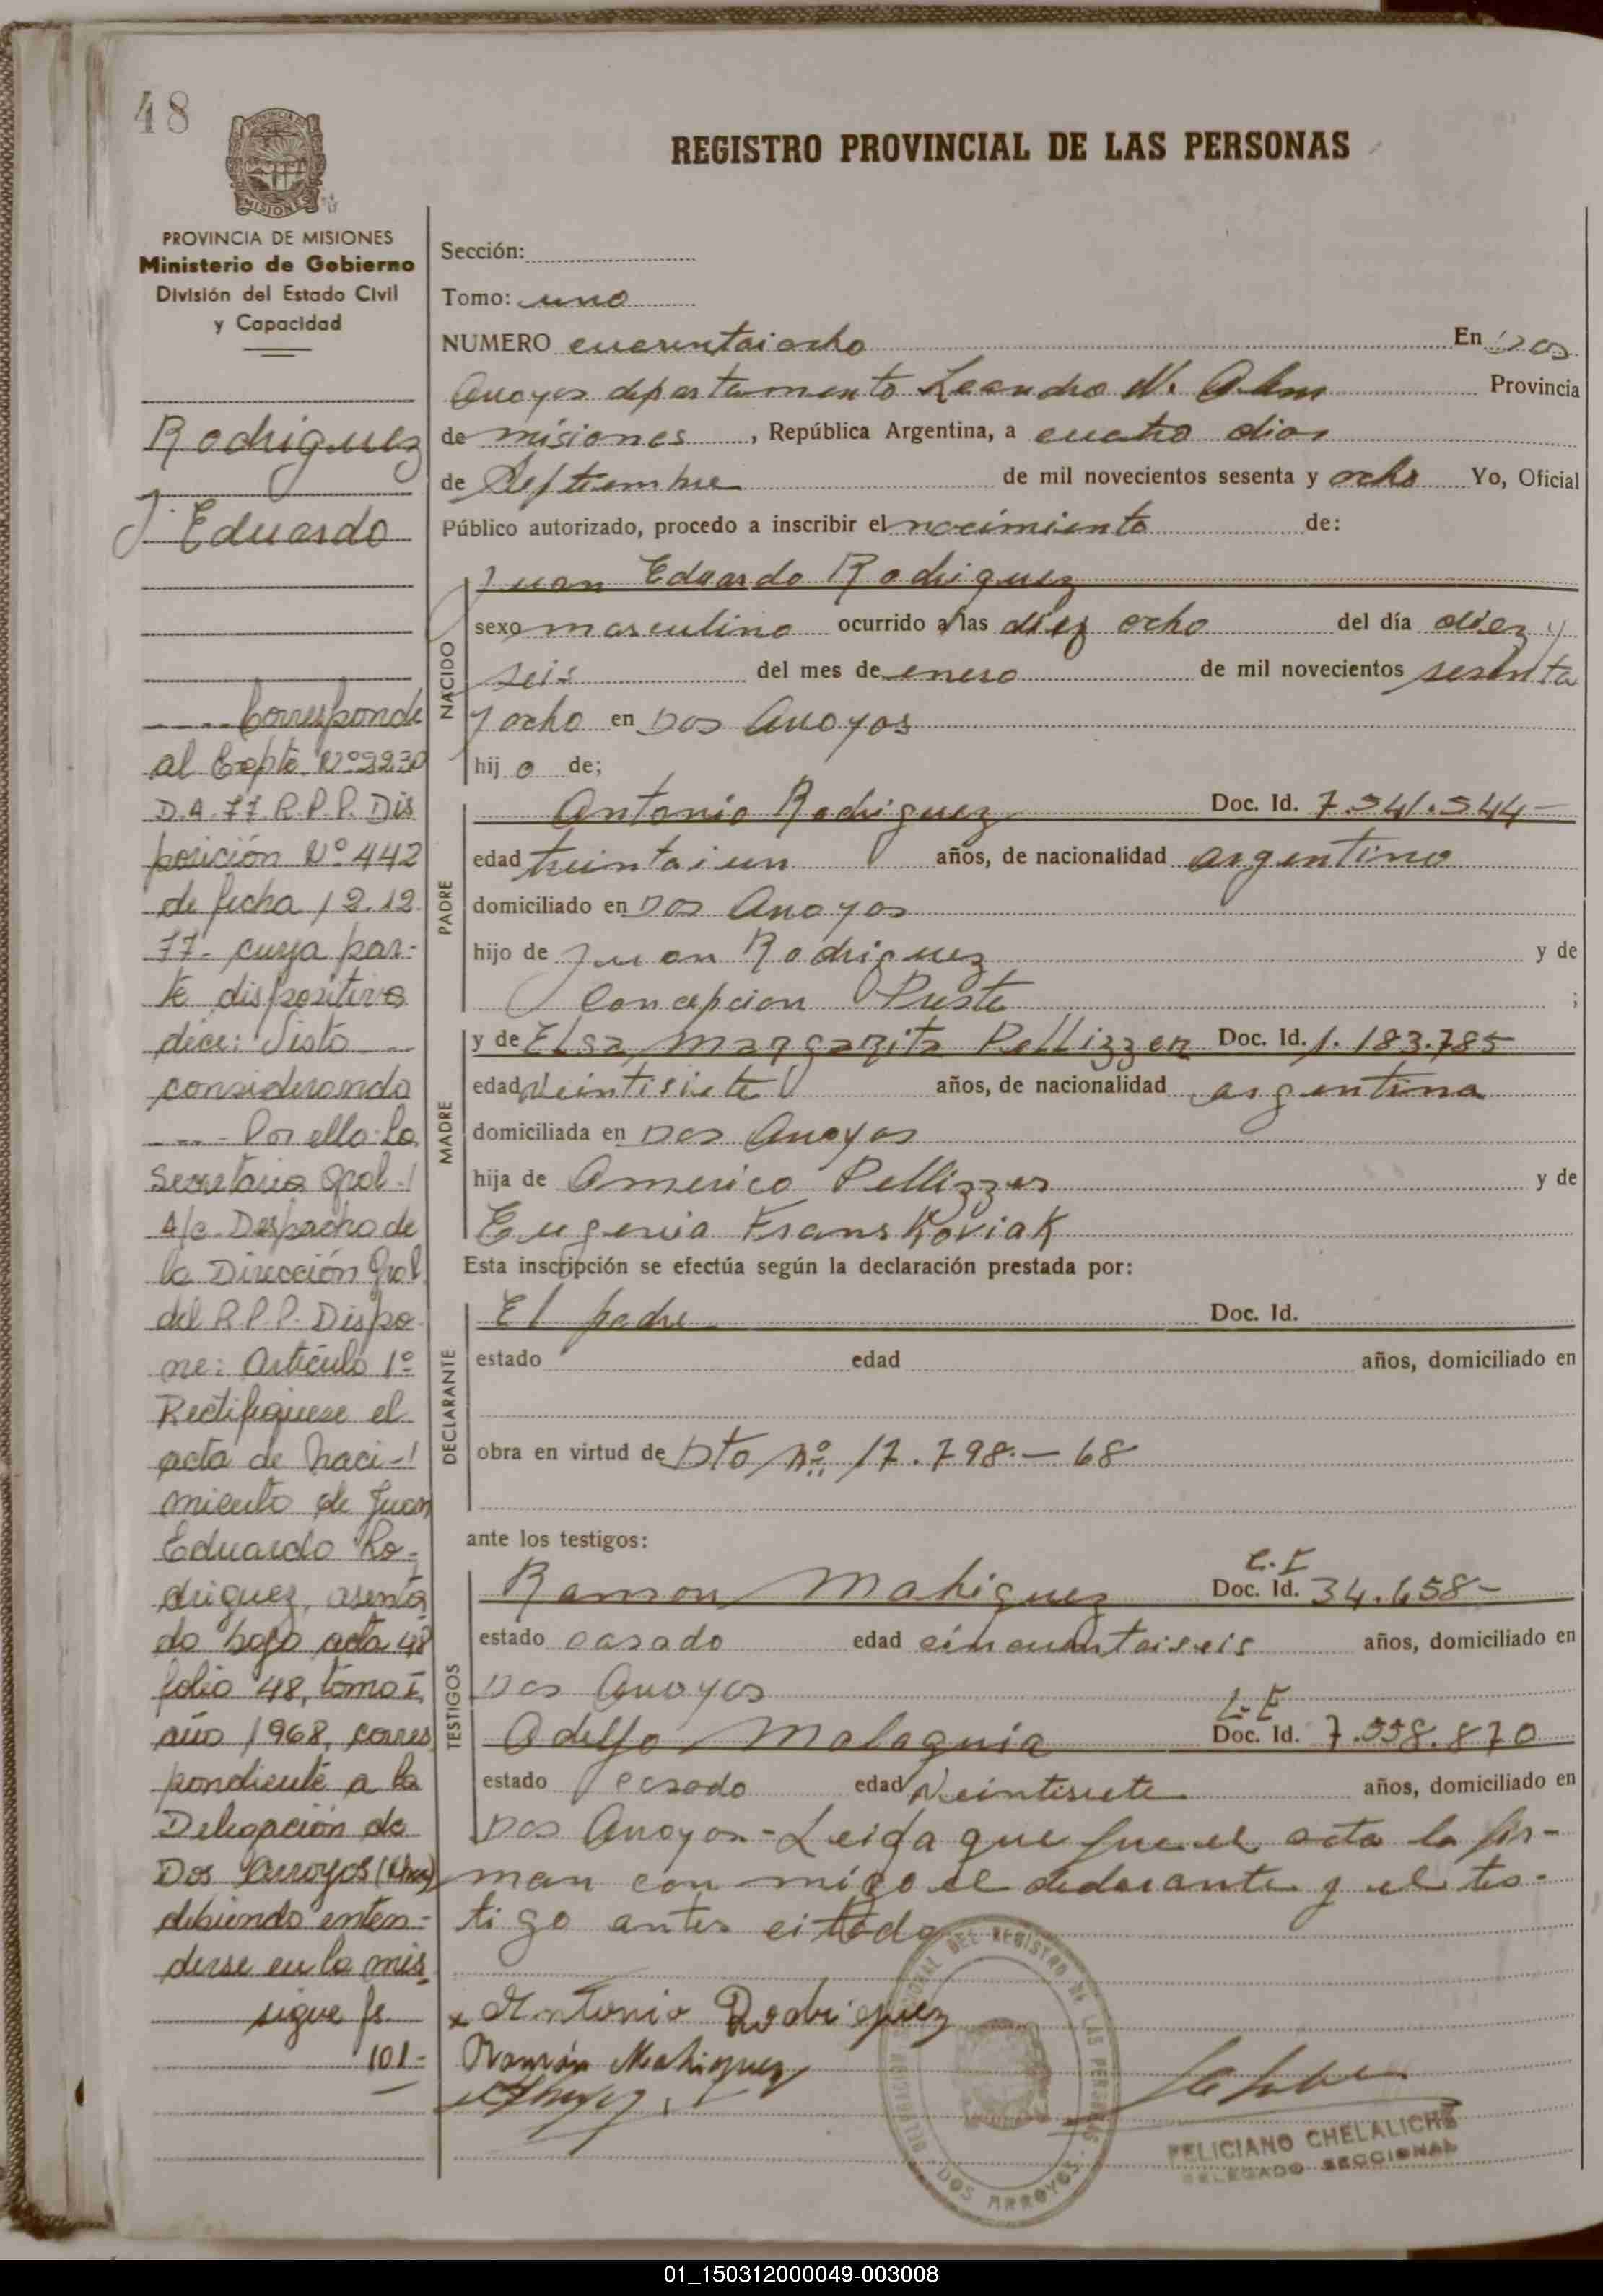 48
REGISTRO PROVINCIAL DE LAS PERSONAS
PROVINCIA DE MISIONES
Ministerio de Gobierno
División del Estado Civil
y Capacidad
Rodriguez
J. Eduardo
Corresponde
al Expte. Nº 3230
D.A. 77 R.P.P. Dis
posición Nº 442
de fecha 12.12
77- cuya par-
te dispositiva
dice: Visto
considerando
Por ello: La
Secretaria Gral.
A/c. Despacho de
la Dirección Gral.
del R.P.P. Dispo
ne: Artículo 1º
Rectifiquese el
acta de naci-
miento de Juan
Eduardo Ro-
driguez, asenta
do bajo acta 48
folio 48, tomo I,
año 1968, corres
pondiente a la
Delegación de
Dos Arroyos
debiendo enten-
derse en la mis
sigue fs
101-
Sección:
Tomo: uno
NUMERO cuarentaiocho En Dos
Arroyos departamento Leandro N. Alem Provincia
de misiones, República Argentina, a cuatro dias
de Septiembre de mil novecientos sesenta y ocho Yo, Oficial
Público autorizado, procedo a inscribir el nacimiento de:
NACIDO
Juan Eduardo Rodriguez
sexo masculino ocurrido a las diez ocho del día diez y
seis del mes de enero de mil novecientos sesenta
y ocho en Dos Arroyos
hijo de;
PADRE
Antonio Rodriguez Doc. Id. 7.541.544-
edad treintaiun años, de nacionalidad argentino
domiciliado en Dos Arroyos
hijo de Juan Rodriguez y de
Concepcion Preste ;
MADRE
y de Elsa Margarita Pellizzer Doc. Id. 1.183.785
edad Veintisiete años, de nacionalidad argentina
domiciliada en Dos Arroyos
hija de Americo Pellizzer y de
Eugenia Franskoviak
Esta inscripción se efectúa según la declaración prestada por:
DECLARANTE
El padre Doc. Id.
estado edad años, domiciliado en
obra en virtud de Dto Nº 17.798.- 68
ante los testigos:
TESTIGOS
C.I
Ramon Mahiquez Doc. Id. 34.658-
estado casado edad cincuentaiseis años, domiciliado en
Dos Arroyos
L.E
Adelfo Malaguia Doc. Id. 7.558.870
estado casado edad Veintisiete años, domiciliado en
Dos Arroyos-Leida que fue el acta la fir-
man con migo el declarante y el tes-
tigo antes citado
x Antonio Rodriguez
Ramón Mahiquez
DEL REGISTRO DE LAS PERSONAS
DOS ARROYOS
FELICIANO CHELALICHE
DELEGADO SECCIONAL
01_150312000049-003008